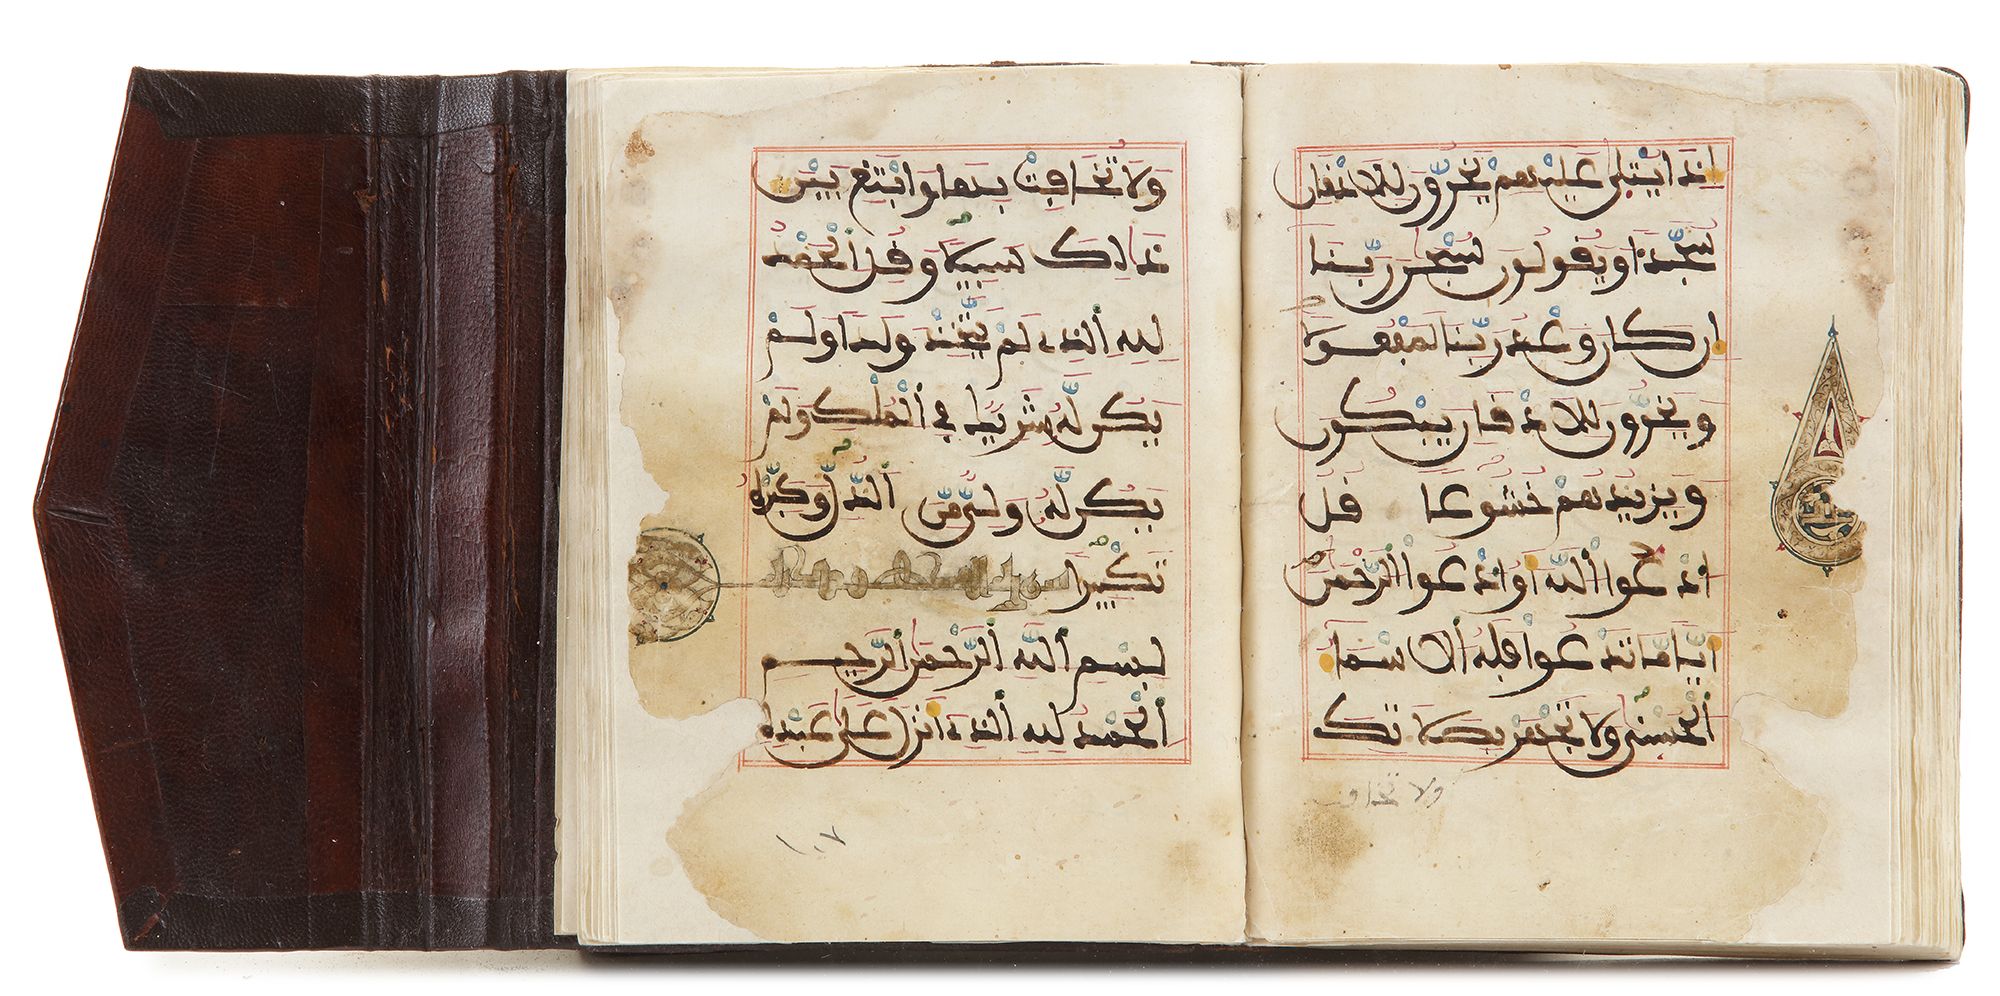 إذا يتلى عليهم يخرون للاذقان
سجدا ويقولون سبحن ربنا
ان كان وعد ربنا لمفعولا
ويخرون للاذقان يبكون
ويزيدهم خشوعا قل
ادعوا الله أو ادعوا الرحمن
أيا ما تدعوا فله الاسما
الحسنى ولا تجهر بصلاتك
ولا تخافت
ولا تخافت بها وابتغ بين
ذلك سبيلا وقل الحمد
لله الذى لم يتخذ ولدا ولم
يكن له شريك في الملك ولم
يكن له ولى من الذل وكبره
تكبيرا
بسم الله الرحمن الرحيم
الحمد لله الذى أنزل على عبده
١٠٧